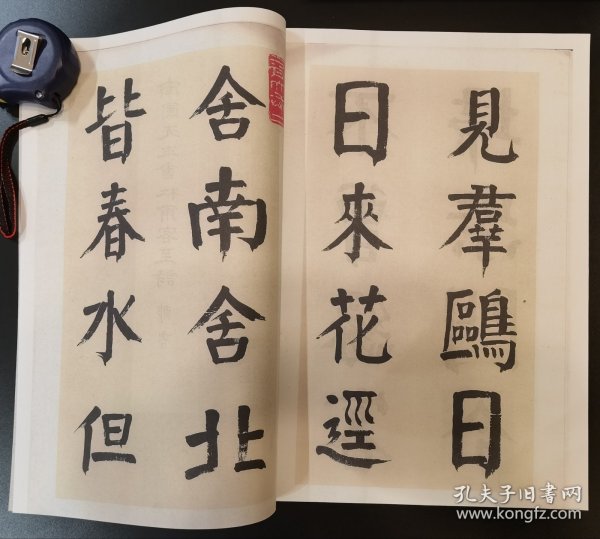 舍南舍北
皆春水但
見羣鷗日
日來花逕
孔夫子旧书网
www.kongfz.com